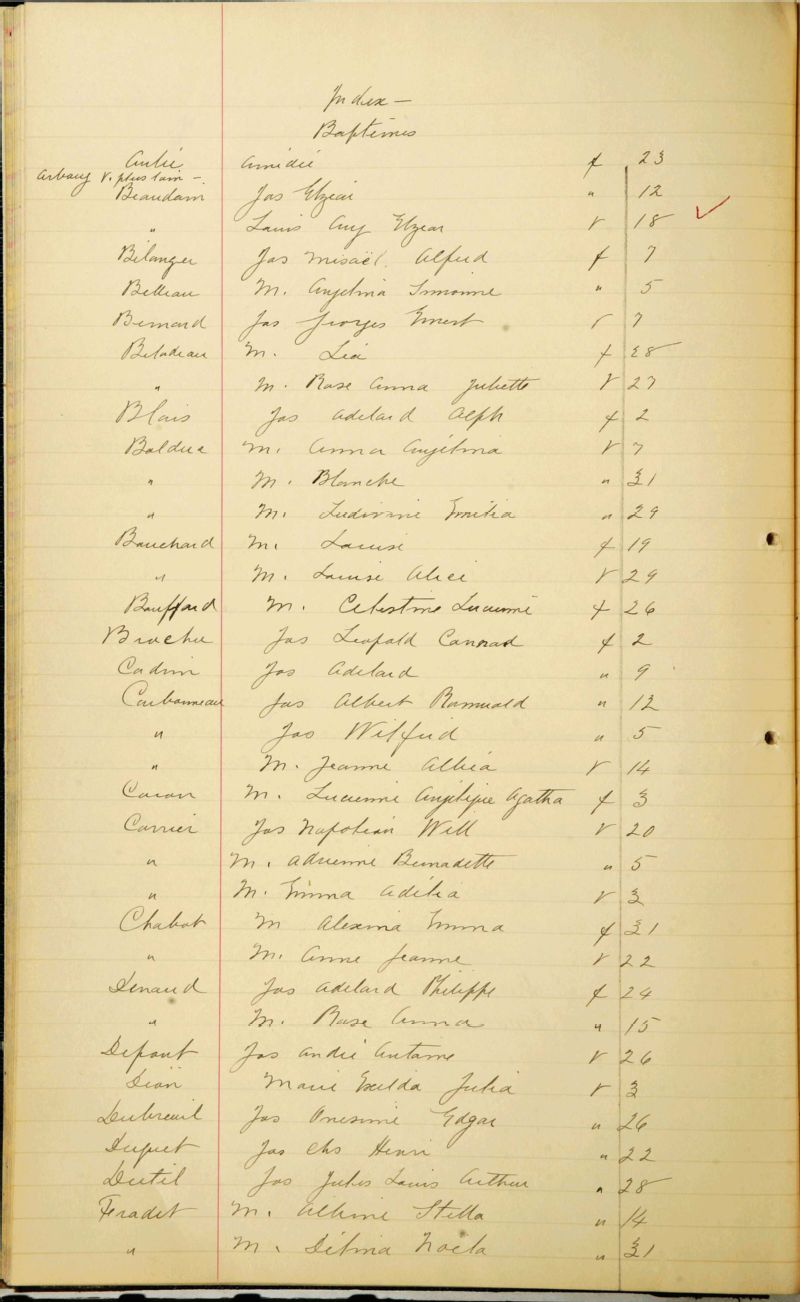 Index —
Baptêmes
Aubé Amédée f 23
Arbour v. plus loin —
Beaudoin Jos Elzear " 12
" Louis Aug Elzear v 18 ✓
Bélanger Jos Misaël Alfred f 7
Belleau M. Angelina Simonne " 5
Bernard Jos Georges Ernest v 7
Bilodeau M. Léa f 28
" M. Rose Anna Juliette v 27
Blais Jos Adelard Alph f 2
Bolduc M. Anna Angélina v 7
" M. Blanche " 31
" M. Ludivine Emilia " 29
Bouchard M. Louise f 19
" M. Louise Alice v 29
Bouffard M. Celestine Lucienne f 26
Brochu Jos Leopold Conrad f 2
Jos Adelard " 9
Carbonneau Jos Albert Romuald " 12
" Jos Wilfrid " 5
" M. Jeanne Albéa v 14
Caron M. Lucienne Angélique Agatha f 3
Carrier Jos Napoléon Will v 20
" M. Adrienne Bernadette " 5
" M. Emma Adélia v 3
Chabot M Alexina Emma f 31
" M. Anne Jeanne v 22
Denaud Jos Adelard Philippe f 24
" M. Rose Anna " 15
Depont Jos André Antoine v 26
Dion Marie Exilda Julia v 3
Dubreuil Jos Onesime Edgar " 26
Duquet Jos Chs Henri " 22
Dutil Jos Jules Louis Arthur " 28
Fradet M. Albine Stella " 14
" M. Délina Noëla " 31